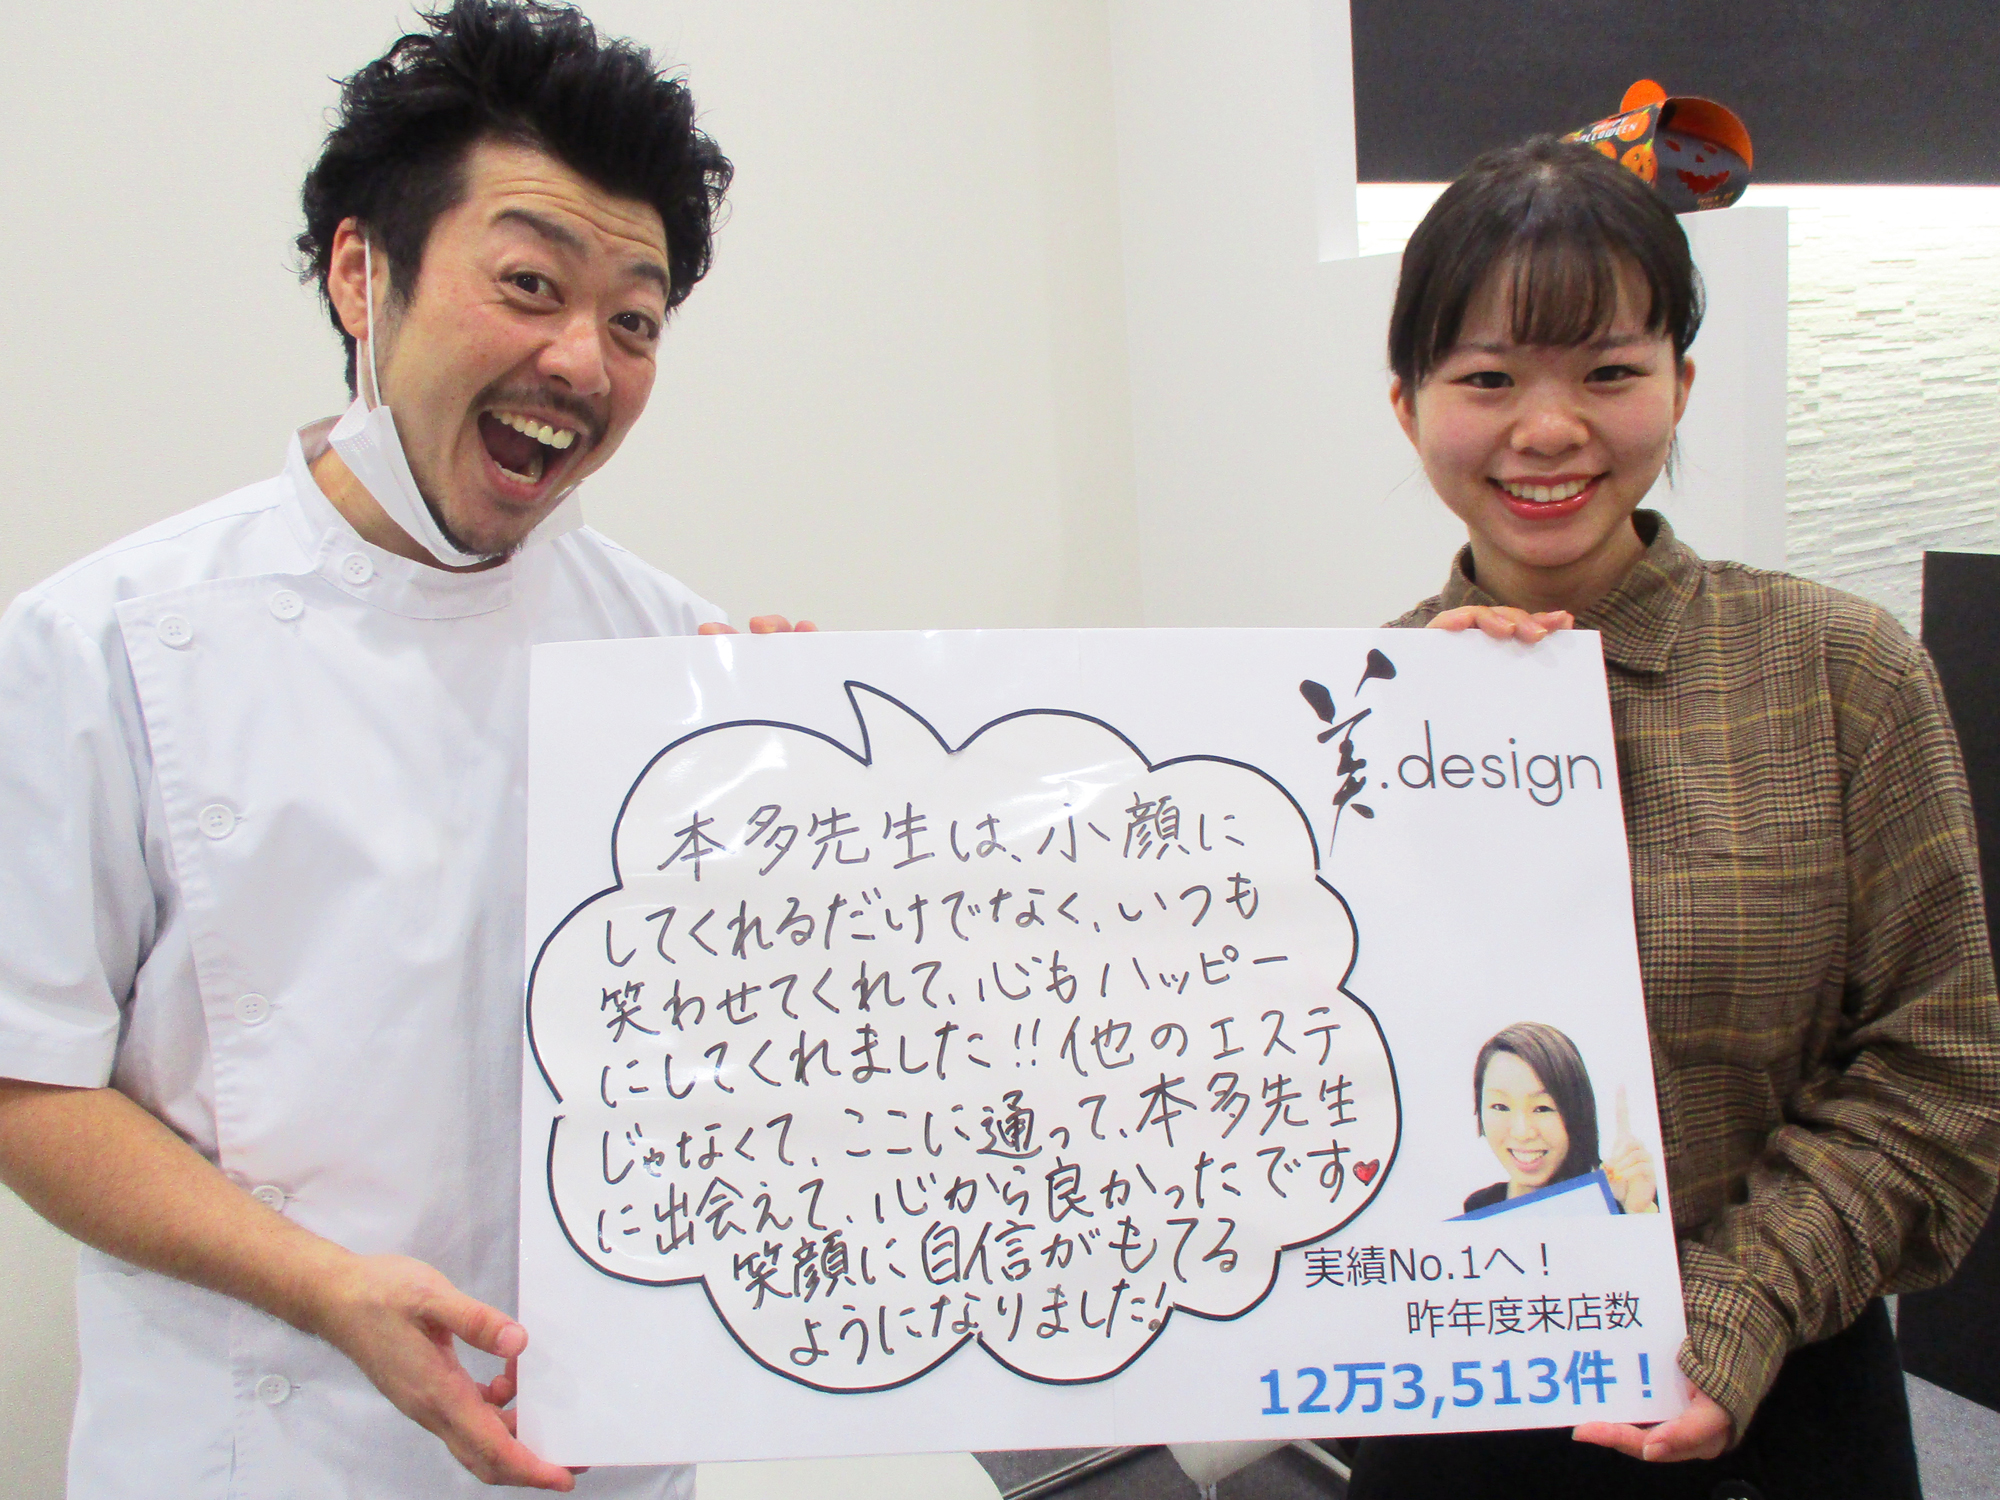 HALLOWEEN
美.design
本多先生は、小顔に
してくれるだけでなく、いつも
笑わせてくれて、心もハッピー
にしてくれました!!他のエステ
じゃなくて、ここに通って、本多先生
に出会えて、心から良かったです♥
笑顔に自信がもてる
ようになりました!
実績No.1へ！
昨年度来店数
12万3,513件！